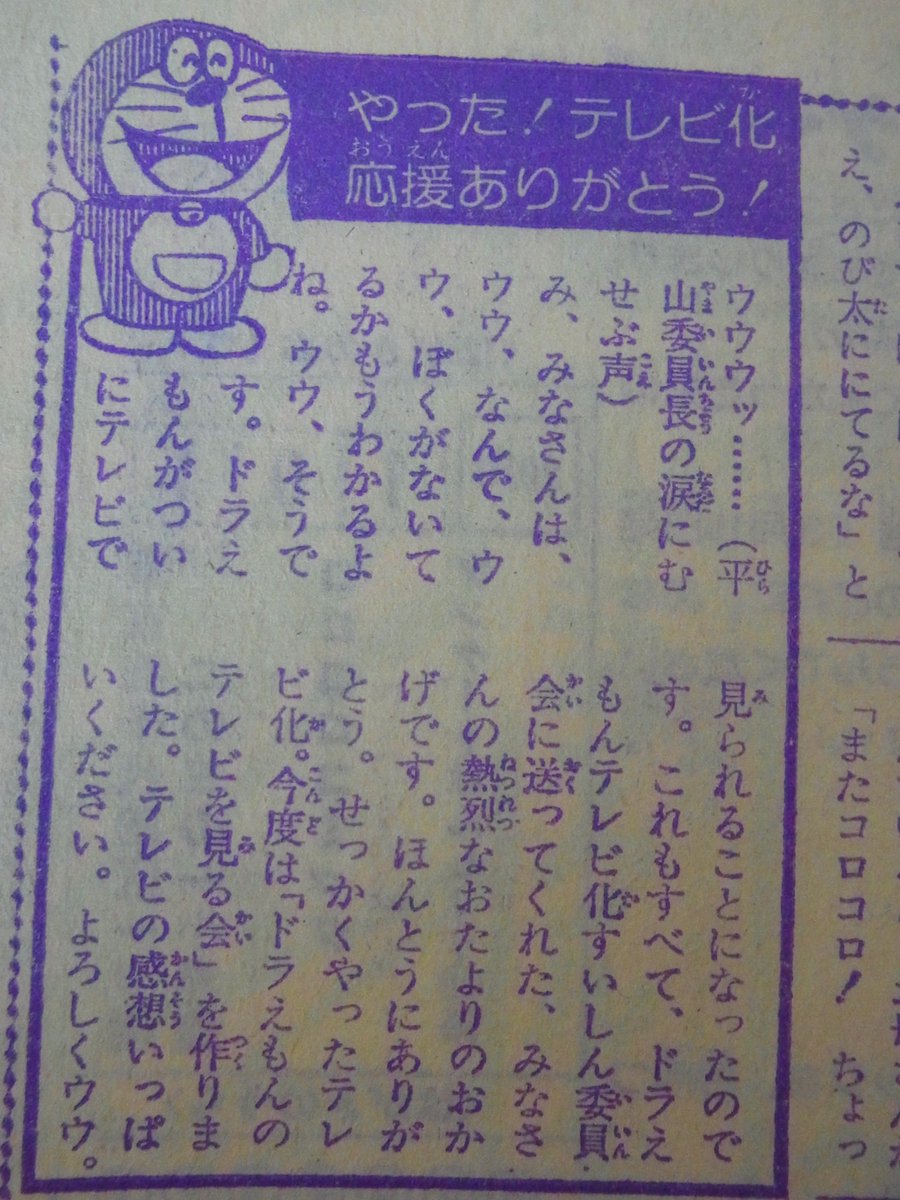 やった!テレビ化
応援ありがとう!
ウウウッ……(平
山委員長の涙にむ
せぶ声)
み、みなさんは、
ウウ、なんで、ウ
ウ、ぼくがないて
るかもうわかるよ
ね。ウウ、そうで
す。ドラえ
もんがつい
にテレビで
見られることになったので
す。これもすべて、ドラえ
もんテレビ化すいしん委員
会に送ってくれた、みなさ
んの熱烈なおたよりのおか
げです。ほんとうにありが
とう。せっかくやったテレ
ビ化。今度は「ドラえもんの
テレビを見る会」を作りま
した。テレビの感想いっぱ
いください。よろしくウウ。
え、のび太ににてるな」と
「またコロコロ! ちょっ